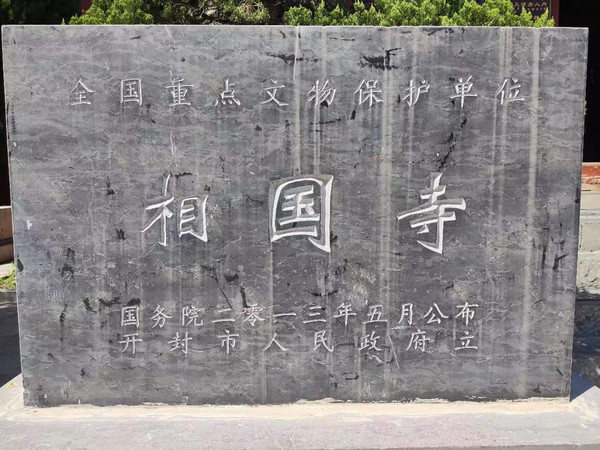 全国重点文物保护单位
相国寺
国务院二零一三年五月公布
开封市人民政府立